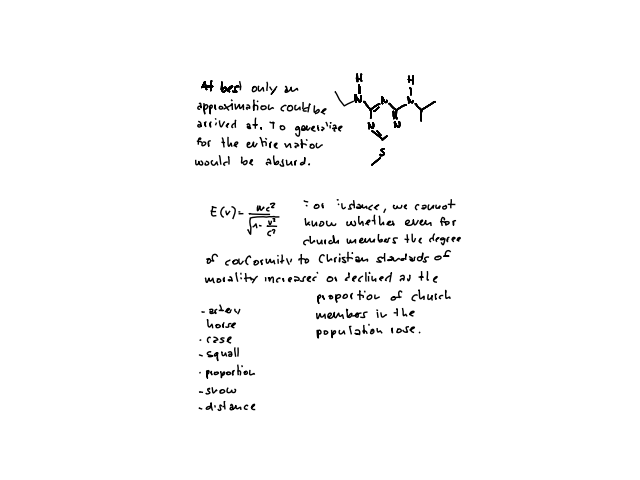 At best only an
approximation could be
arrived at. To generalize
for the entire nation
would be absurd.
H
N
H
N
N
N
N
S
E(v) = mc² / √(1 - v²/c²)
For instance, we cannot
know whether even for
church members the degree
of conformity to Christian standards of
morality increased or declined as the
proportion of church
members in the
population rose.
horse
- case
- squall
- proportion
- show
- distance